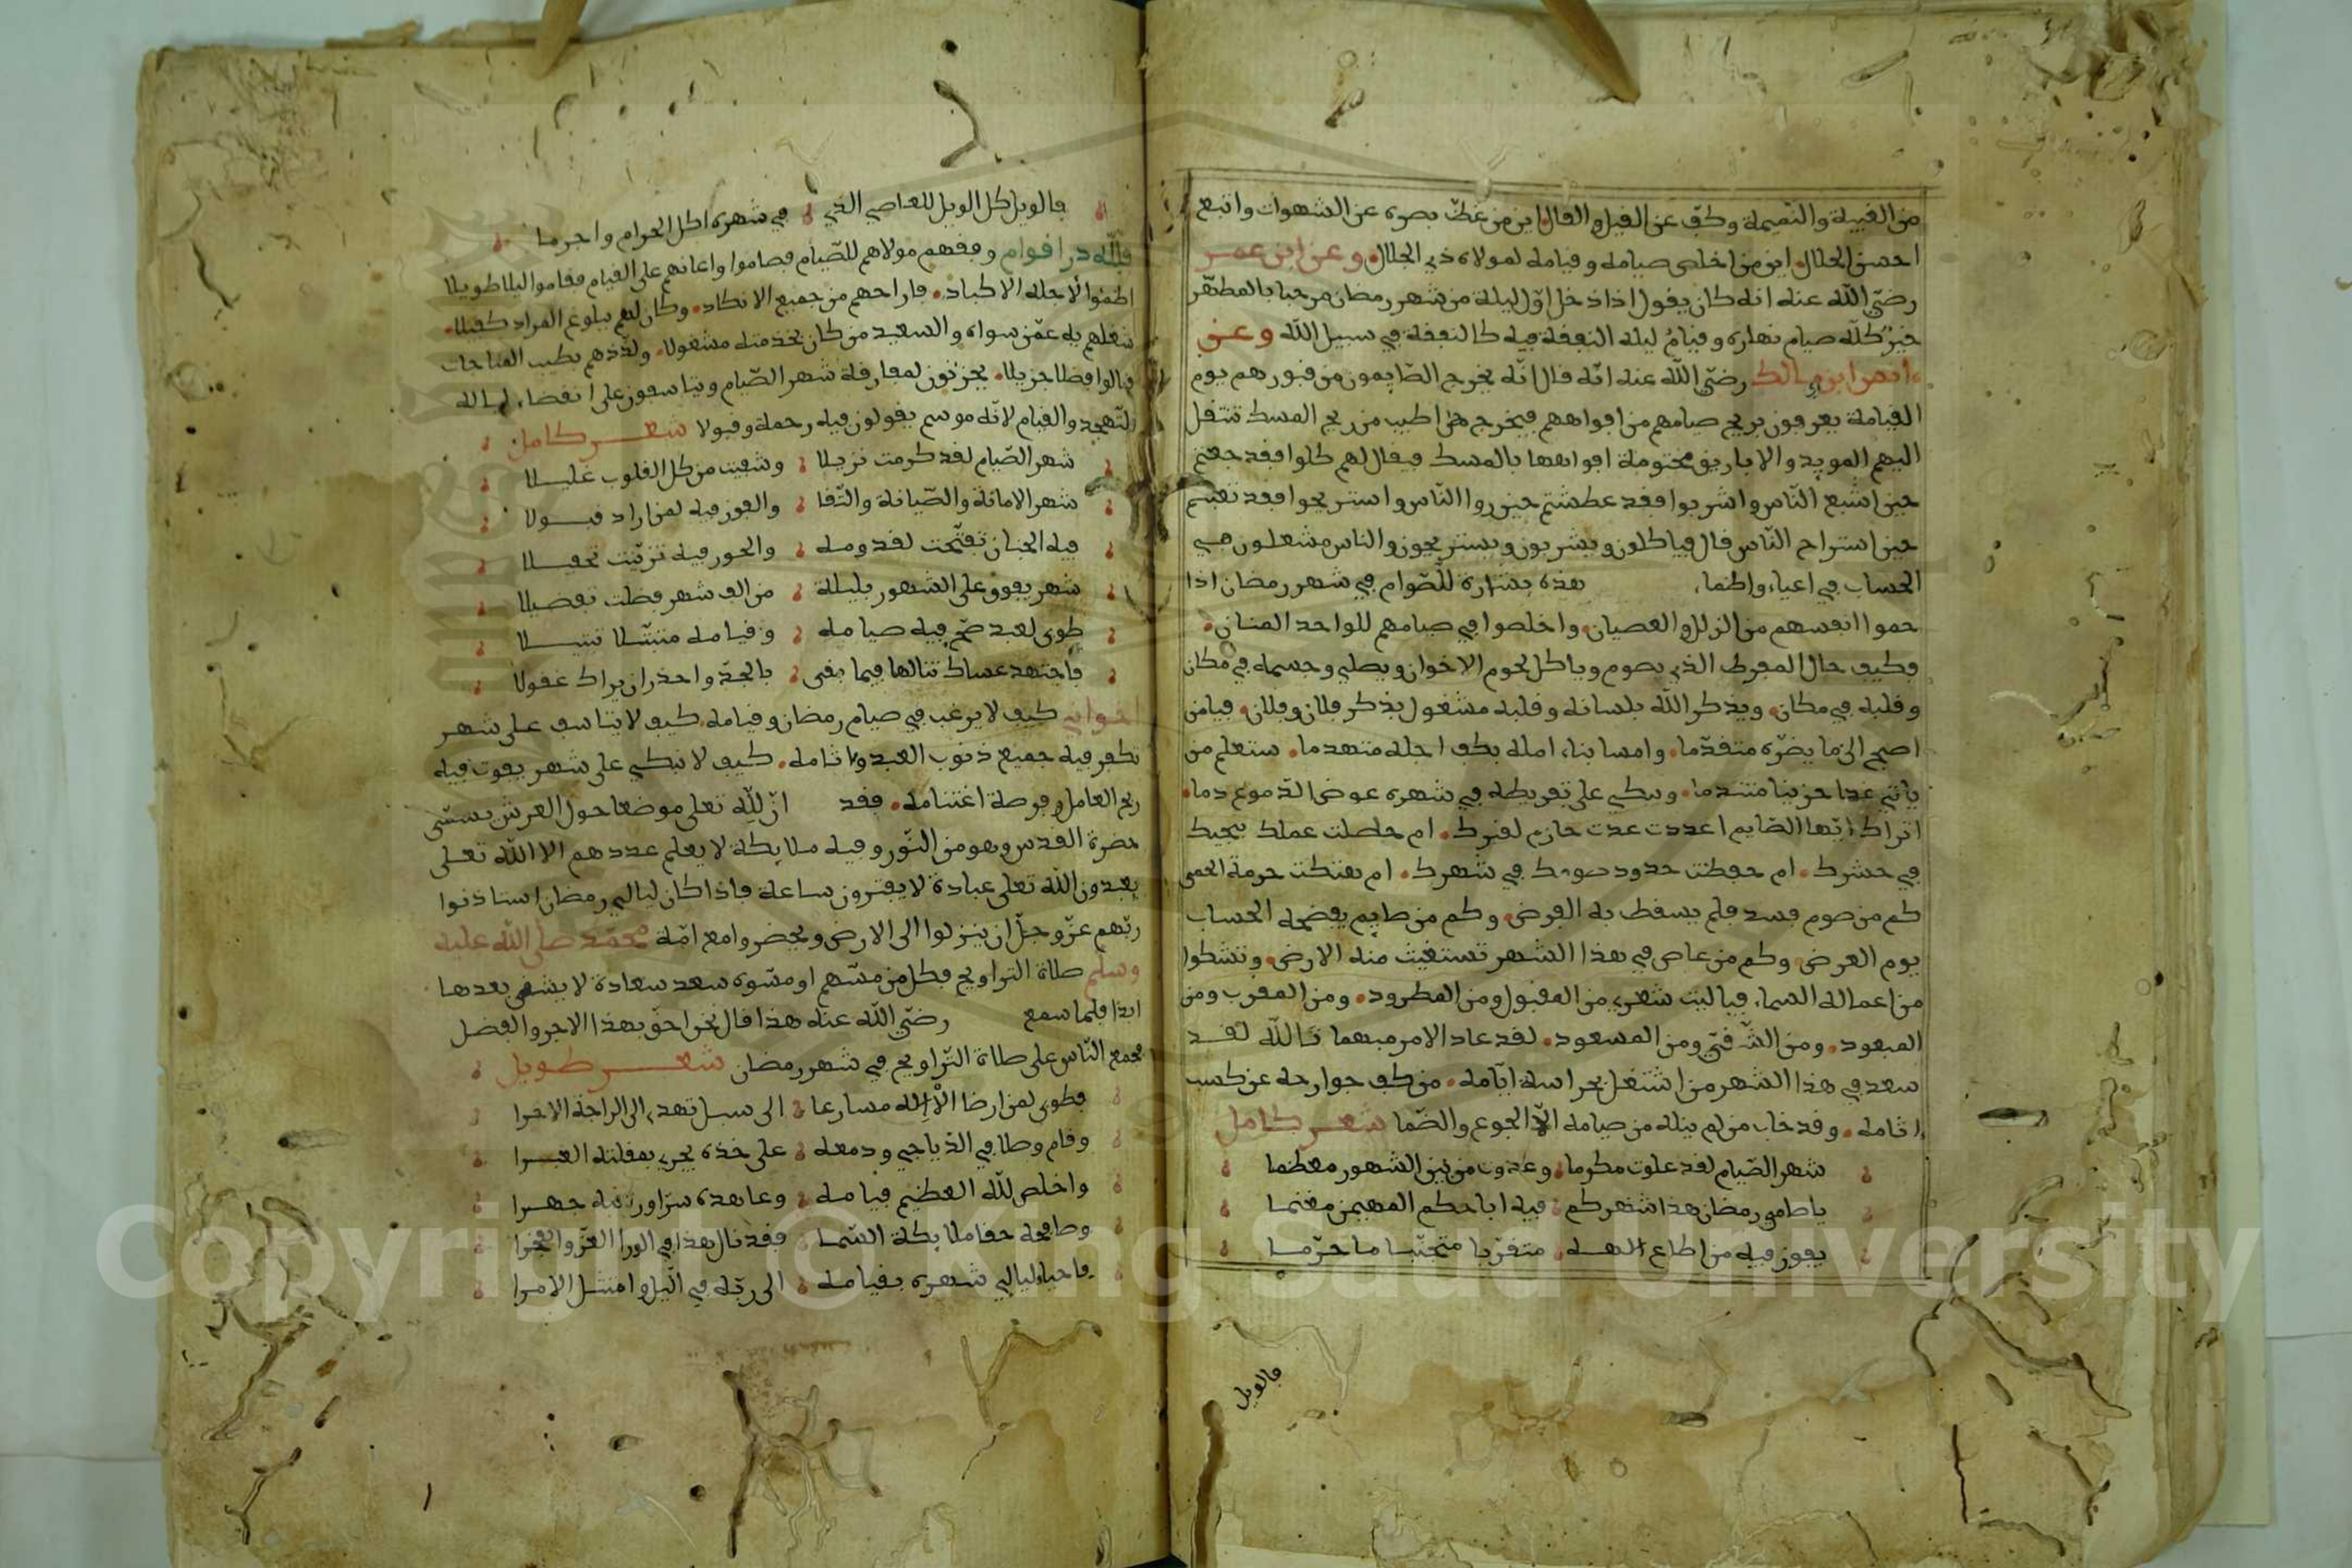 من الغيبة والنميمة وكفّ عن القيل والقال اين من غضّ بصره عن الشهوات واتبع
احسن الخلال اين من اخلص صيامه وقيامه لمولاه ذي الجلال وعن ابن عمر
رضي الله عنه انه كان يقول اذا دخل اوّل ليلة من شهر رمضان مرحبا بالمطهّر
خيرٌ كلّه صيام نهاره وقيامُ ليله النفقة فيه كالنفقة في سبيل الله وعن
انس ابن مالك رضي الله عنه انّه قال انّه يخرج الصّايمون من قبورهم يوم
القيامة يعرفون بريح صيامهم من افواههم فيخرج اطيب من ريح المسك تنتقل
اليهم الموايد والاباريق مختومة افواهها بالمسك فيقال لهم كلوا فقد جعتم
حين اشبع النّاس واشربوا فقد عطشتم حين روا النّاس واستريحوا فقد تعبتم
حين استراح النّاس قال فياكلون ويشربون ويستريحون والناس مشغلون في
الحساب في اعياء واظماء هذه بشارة للصّوام في شهر رمضان اذا
حموا انفسهم من الزلل والعصيان واخلصوا في صيامهم للواحد المنان
فكيف حال المفرط الذي يصوم وياكل لحوم الاخوان ويصلي وجسمه في مكان
وقلبه في مكان ويذكر الله بلسانه وقلبه مشغول بذكر فلان وفلان فيامن
اصبح الى ما يضرّه متقدّما وامسا بناء امله بكف اجله متهدما ستعلم من
ياتي غدا حزينا متندما ويبكي على تفريطه في شهره عوض الدّموع دما
اتراك ايّها الصّايم اعددت عدت حازم لقبرك ام حصلت عملك ينجيك
في حشرك ام حفظت حدود صومك في شهرك ام هتكت حرمة الحمى
كم من صوم فسد فلم يسقط به الفرض وكم من صايم يفضحه الحساب
يوم العرض وكم من عاص في هذا الشهر تستغيث منه الارض وتشكوا
من اعماله السماء فياليت شعري من المقبول ومن المطرود ومن المقرب ومن
المبعود ومن الشّقيّ ومن المسعود لقد عاد الامر مبهما تالله لقد
سعد في هذا الشهر من اشتغل بحراسة ايّامه من كف جوارحه عن كسب
اثامه وقد خاب من لم ينله من صيامه الّا الجوع والضّما شعر كامل
شهر الصّيام لقد علوت مكرما وغدوت من بين الشهور معظما
ياصامي رمضان هذا شهركم فيه اباحكم المهيمن مغنما
يفوز فيه من اطاع الهه متقرّبا متجنّبا ما حرّما
فالويل
فالويل كل الويل للعاصي الذي في شهره اكل الحرام واجرما
فلله در اقوام وفقهم مولاهم للصّيام فصاموا واعانهم على القيام فقاموا ليلا طويلا
اظمئوا لاجله الاكباد فاراحهم من جميع الانكاد وكان لهم ببلوغ المراد كفيلا
شغلهم به عمّن سواه والسعيد من كان بخدمته مشغولا ولذّذهم بطيب المناجات
فنالوا فضلا جزيلا يحزنون لمفارقة شهر الصّيام ويتاسفون على انقضاء لياله
للتهجد والقيام لانّه موسم يقولون فيه رحمة وقبولا شعر كامل
شهر الصّيام لقد كرمت نزيلا وشفيت من كل القلوب غليلا
شهر الامانة والصّيانة والتّقا والفوز فيه لمن اراد قبولا
فيه الجنان تفتّحت لقدومه والحور فيه تزيّنت تحفيلا
شهر يفوق على الشهور بليلة من الف شهر فضلت تفضيلا
طوبى لعبد صحّ فيه صيامه وقيامه متبتّلا تبتيلا
فاجتهد عساك تنالها فيما بقى بالجدّ واحذر ان يراك غفولا
اخواني كيف لا يرغب في صيام رمضان وقيامه كيف لا يتاسف على شهر
تكفر فيه جميع ذنوب العبد واثامه كيف لا نبكي على شهر يفوت فيه
ربح العامل وفرصة اغتنامه فقد انّ لله تعلى موضعا حول العرش يسمّى
حضرة القدس وهو من النّور وفيه ملايكة لا يعلم عددهم الا الله تعلى
يعبدون الله تعلى عبادة لا يفترون ساعة فاذا كان ليالي رمضان استاذنوا
ربّهم عزّ وجلّ ان ينزلوا الى الارض ويحضروا مع امّة محمّد صلى الله عليه
وسلم صلاة التراويح فكل من مسّهم او مسّوه سعد سعادة لا يشقى بعدها
ابدا فلما سمع رضي الله عنه هذا قال نحن احق بهذا الاجر والفضل
فجمع النّاس على صلاة التّراويح في شهر رمضان شعر طويل
فطوبى لمن ارضا الاله مسارعا الى سبل تهدي الى الراحة الاخرا
وقام وصلا في الدّياجي ودمعه على خدّه يجري بمقلته العبرا
واخلص لله العظيم قيامه وعاهده سرّا وراقبه جهرا
وصافحه حقا ملايكة السّما فقد نال هذا في الورا العزّ والفخرا
فاحياء ليالي شهره بقيامه الى ربّه في اليل وامتثل الامرا
Copyright © King Saud University